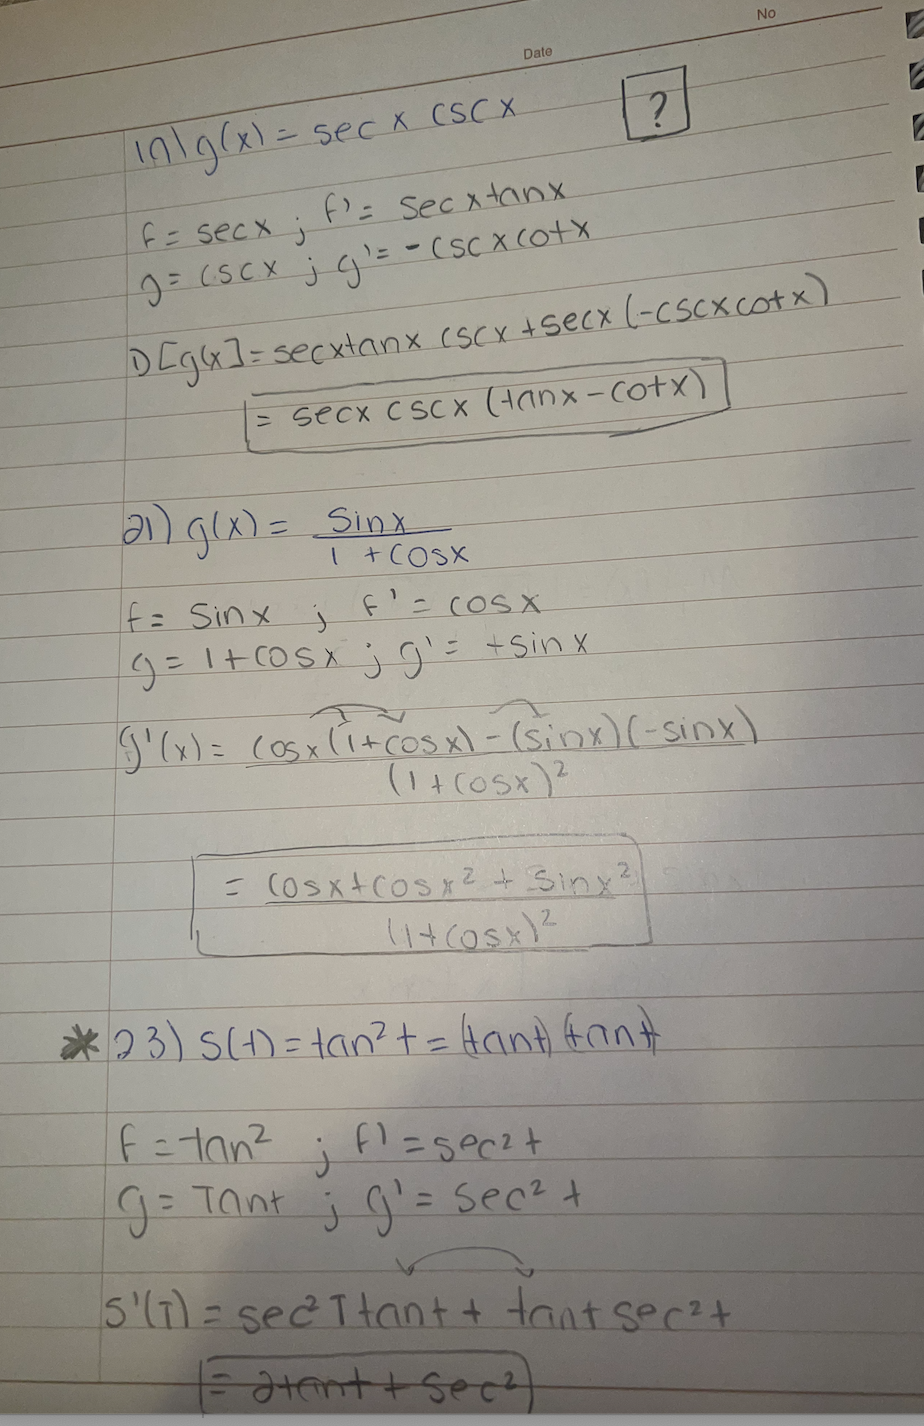 No
Date
19) g(x) = sec x csc x ?
f = secx ; f' = secxtanx
g = cscx ; g' = -cscxcotx
D[g(x)] = secxtanx cscx + secx (-cscxcotx)
= secx cscx (tanx - cotx)
21) g(x) = sinx / 1 + cosx
f = sinx ; f' = cosx
g = 1 + cosx ; g' = +sinx
g'(x) = cosx (1+cosx) - (sinx)(-sinx) / (1+cosx)²
= cosx + cosx² + sinx² / (1+cosx)²
* 23) s(t) = tan²t = (tant)(tant)
f = tan² ; f' = sec²t
g = Tant ; g' = sec²t
s'(T) = sec²Ttant + tantsec²t
= 2tant + sec²